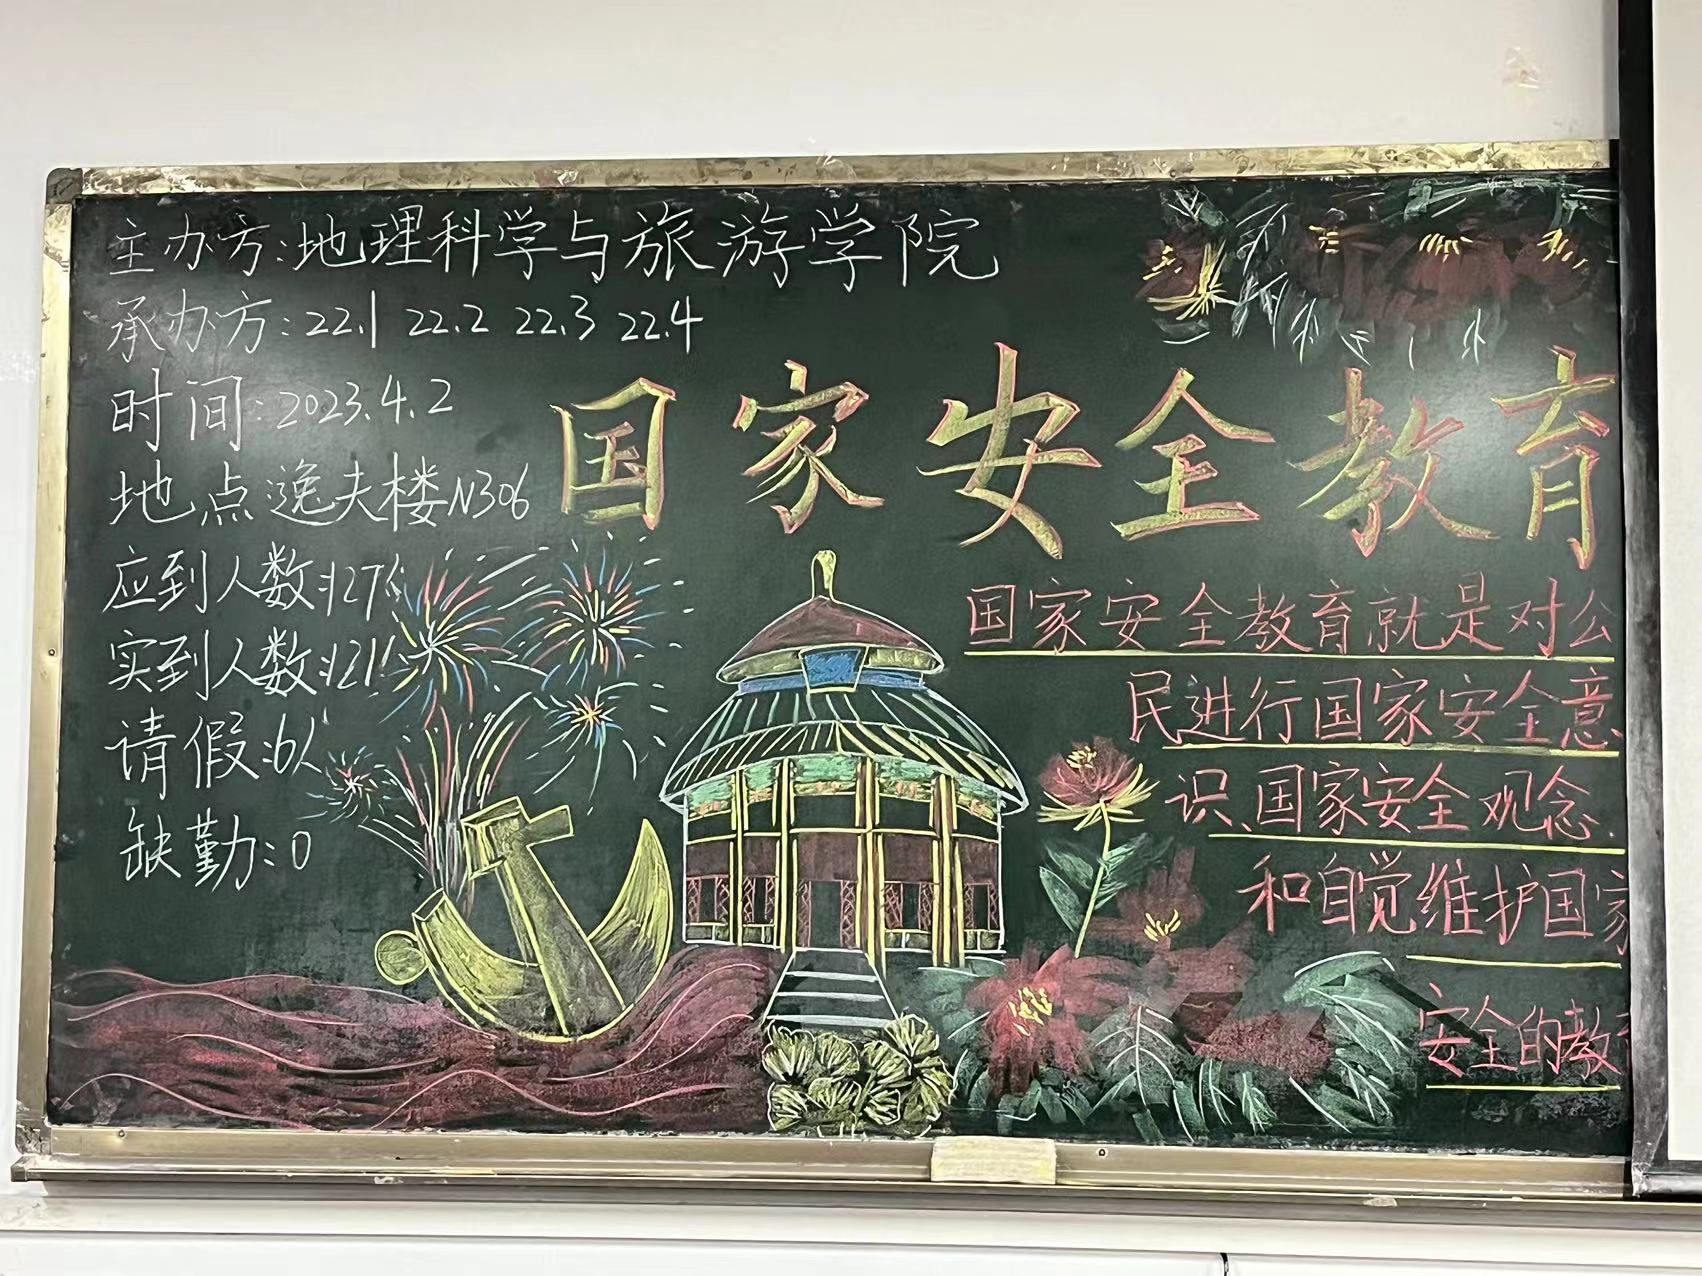 主办方:地理科学与旅游学院
承办方:22.1 22.2 22.3 22.4
时间:2023.4.2
地点:逸夫楼N306
应到人数:127人
实到人数:121人
请假:6人
缺勤:0
国家安全教育
国家安全教育就是对公
民进行国家安全意
识、国家安全观念
和自觉维护国家
安全的教